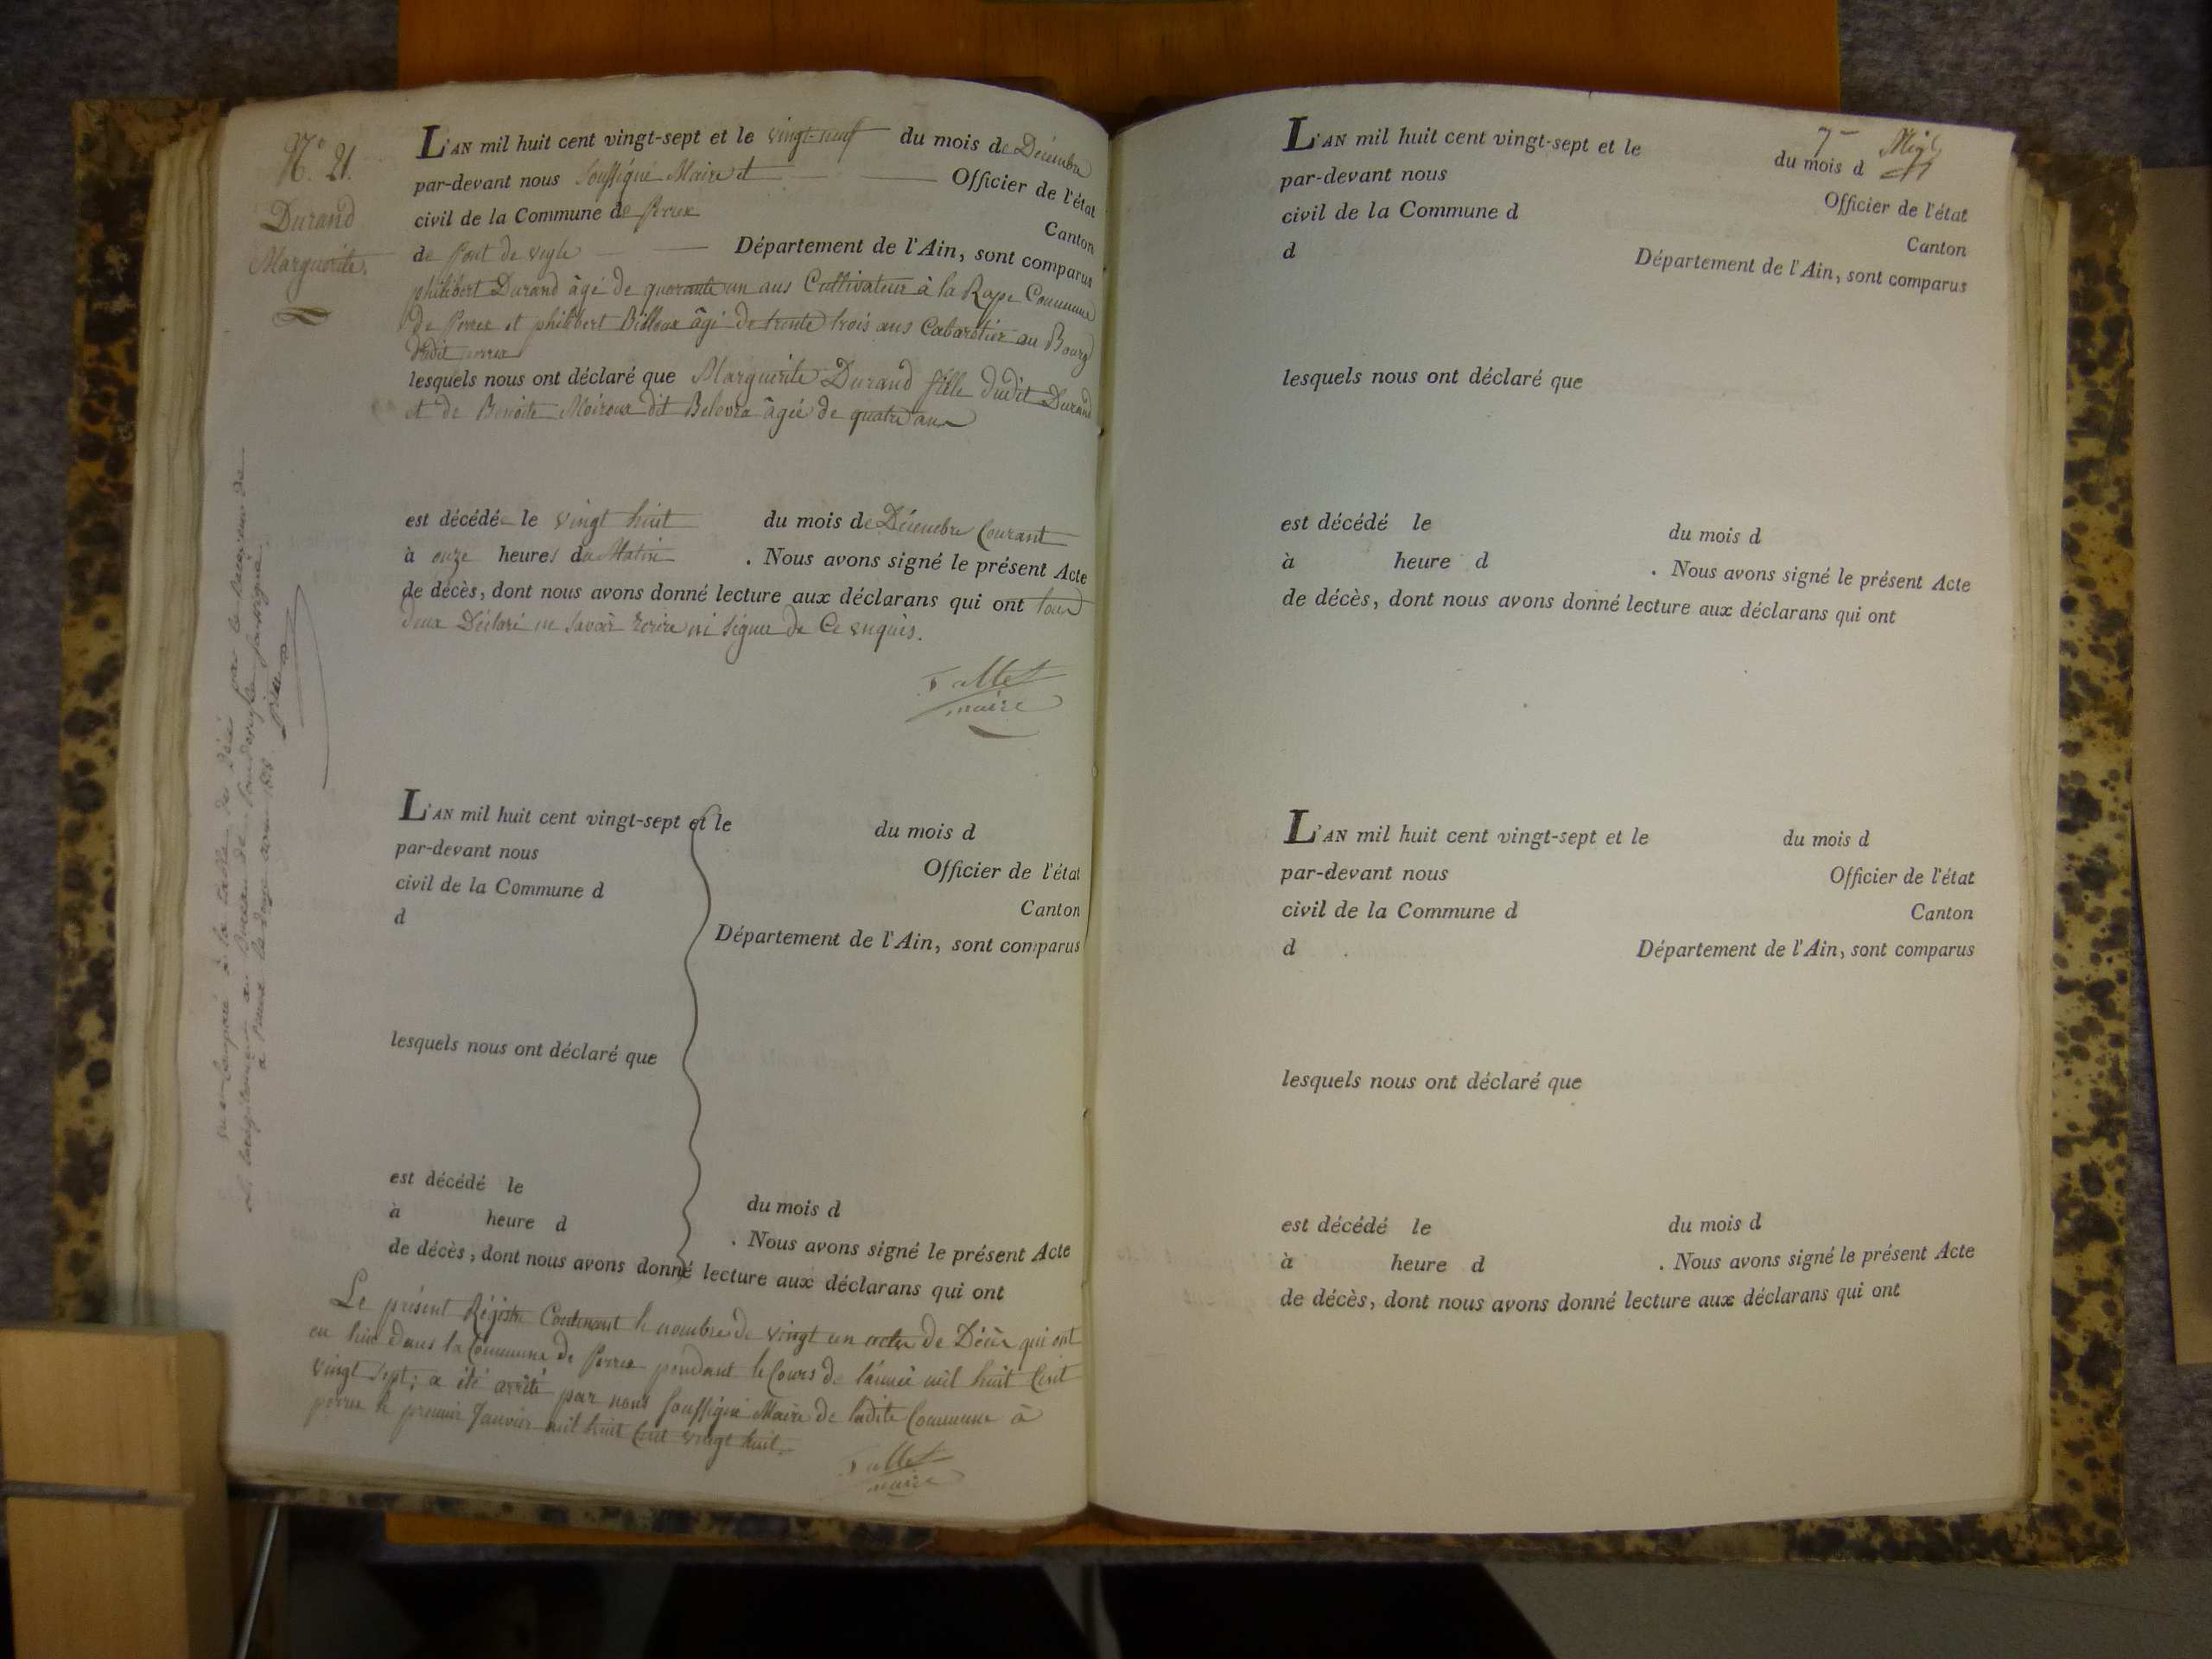 N.° 21.
Durand
Marguerite.
L'AN mil huit cent vingt-sept et le vingt-neuf du mois de Décembre
par-devant nous Soussigné Maire et Officier de l'état
civil de la Commune de Perrex Canton
de Pont de veyle Département de l'Ain, sont comparus
philibert Durand âgé de quarante un ans Cultivateur à la Rape Commune
de Perrex et philibert Billoux âgé de trente trois ans Cabaretier au Bourg
dudit perrex
lesquels nous ont déclaré que Marguerite Durand fille dudit Durand
et de Benoite Moiroux dit Belovra âgée de quatre ans
est décédée le vingt huit du mois de Décembre Courant
à onze heures du Matin . Nous avons signé le présent Acte
de décès, dont nous avons donné lecture aux déclarans qui ont tous
deux Déclaré ne Savoir Ecrire ni signer de Ce enquis.
maire
vu et comparé à la table des décès par le receveur de
l'enregistrement au Bureau de Pont de veyle soussigné
L'AN mil huit cent vingt-sept et le du mois d
par-devant nous Officier de l'état
civil de la Commune d Canton
d Département de l'Ain, sont comparus
lesquels nous ont déclaré que
est décédé le du mois d
à heure d . Nous avons signé le présent Acte
de décès, dont nous avons donné lecture aux déclarans qui ont
Le présent Régistre Contenant le nombre de vingt un actes de Décès qui ont
eu lieu dans la Commune de Perrex pendant le Cours de l'année mil huit Cent
vingt sept; a été arrêté par nous soussigné Maire de ladite Commune à
perrex le premier Janvier mil huit Cent vingt huit.
maire
7
L'AN mil huit cent vingt-sept et le du mois d
par-devant nous Officier de l'état
civil de la Commune d Canton
d Département de l'Ain, sont comparus
lesquels nous ont déclaré que
est décédé le du mois d
à heure d . Nous avons signé le présent Acte
de décès, dont nous avons donné lecture aux déclarans qui ont
L'AN mil huit cent vingt-sept et le du mois d
par-devant nous Officier de l'état
civil de la Commune d Canton
d Département de l'Ain, sont comparus
lesquels nous ont déclaré que
est décédé le du mois d
à heure d . Nous avons signé le présent Acte
de décès, dont nous avons donné lecture aux déclarans qui ont